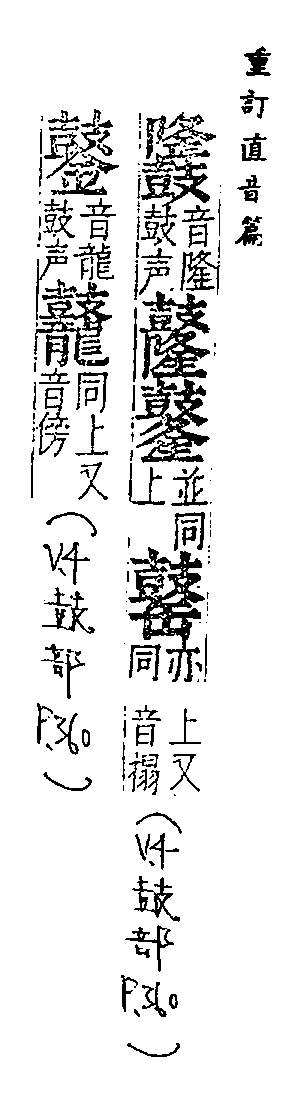 重訂直音篇
音隆鼓声 並同上 亦同上又音褟 (V.4 鼓部 P.360)
音龍鼓声 同上又音傍 (V.4 鼓部 P.360)